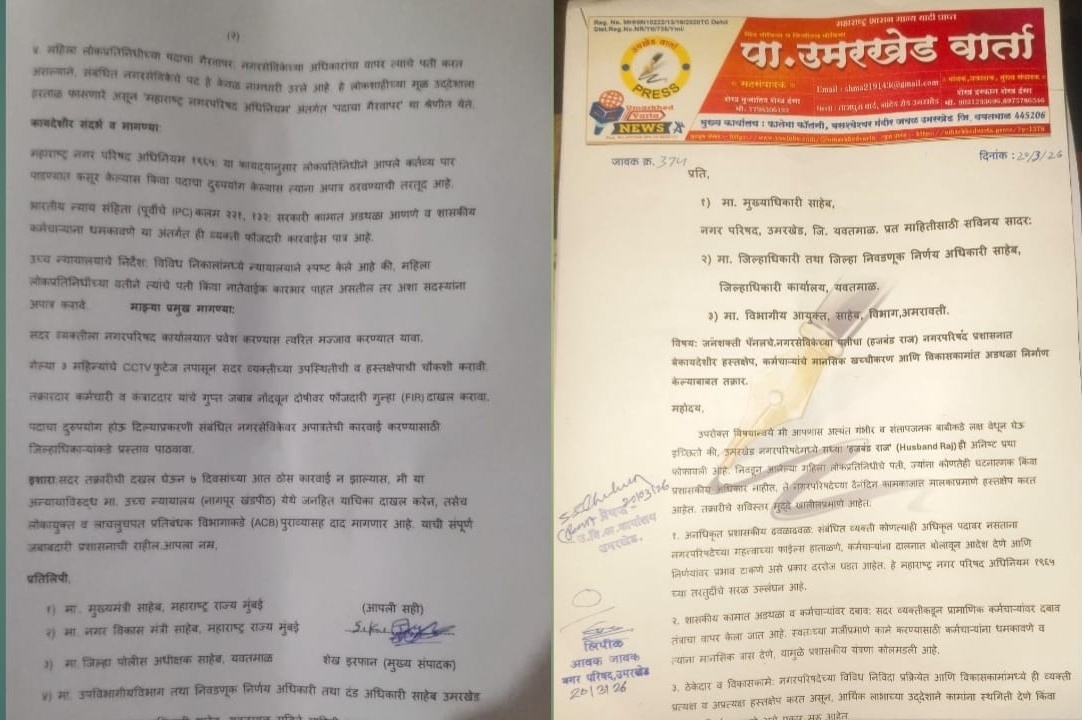 (२)
४. महिला लोकप्रतिनिधीच्या पदाचा गैरवापर: नगरसेविकेच्या अधिकारांचा वापर त्यांचे पती करत
असल्याने, संबंधित नगरसेविकेचे पद हे केवळ नामधारी उरले आहे. हे लोकशाहीच्या मूळ उद्देशाला
हरताळ फासणारे असून 'महाराष्ट्र नगरपरिषद अधिनियम' अंतर्गत 'पदाचा गैरवापर' या श्रेणीत येते.
कायदेशीर संदर्भ व मागण्या:
महाराष्ट्र नगर परिषद अधिनियम १९६५: या कायद्यानुसार लोकप्रतिनिधीने आपले कर्तव्य पार
पाडण्यात कसूर केल्यास किंवा पदाचा दुरुपयोग केल्यास त्याना अपात्र ठरवण्याची तरतूद आहे.
भारतीय न्याय संहिता (पूर्वीचे IPC) कलम २२१, १३२: सरकारी कामात अडथळा आणणे व शासकीय
कर्मचाऱ्यांना धमकावणे या अंतर्गत ही व्यक्ती फौजदारी कारवाईस पात्र आहे.
उच्च न्यायालयाचे निर्देश: विविध निकालांमध्ये न्यायालयाने स्पष्ट केले आहे की, महिला
लोकप्रतिनिधीच्या वतीने त्यांचे पती किंवा नातेवाईक कारभार पाहत असतील तर अशा सदस्यांना
अपात्र करावे. माझ्या प्रमुख मागण्या:
सदर व्यक्तीला नगरपरिषद कार्यालयात प्रवेश करण्यास त्वरित मज्जाव करण्यात यावा.
गेल्या ३ महिन्यांचे CCTV फुटेज तपासून सदर व्यक्तीच्या उपस्थितीची व हस्तक्षेपाची चौकशी करावी.
तक्रारदार कर्मचारी व कंत्राटदार यांचे गुप्त जबाब नोंदवून दोषीवर फौजदारी गुन्हा (FIR) दाखल करावा.
पदाचा दुरुपयोग होऊ दिल्याप्रकरणी संबंधित नगरसेविकेवर अपात्रतेची कारवाई करण्यासाठी
जिल्हाधिकाऱ्यांकडे प्रस्ताव पाठवावा.
इशारा:सदर तक्रारीची दखल घेऊन ७ दिवसांच्या आत ठोस कारवाई न झाल्यास, मी या
अन्यायाविरुद्ध मा. उच्च न्यायालय (नागपूर खंडपीठ) येथे जनहित याचिका दाखल करेन, तसेच
लोकायुक्त व लाचलुचपत प्रतिबंधक विभागाकडे (ACB) पुराव्यासह दाद मागणार आहे. याची संपूर्ण
जबाबदारी प्रशासनाची राहील.आपला नम्र,
प्रतिलिपी,
१) मा. मुख्यमंत्री साहेब, महाराष्ट्र राज्य मुंबई (आपली सही)
२) मा. नगर विकास मंत्री साहेब, महाराष्ट्र राज्य मुंबई
३) मा.जिल्हा पोलीस अधीक्षक साहेब, यवतमाळ शेख इरफान (मुख्य संपादक)
४) मा. उपविभागीयविभाग तथा निवडणूक निर्णय अधिकारी तथा दंड अधिकारी साहेब उमरखेड
महाराष्ट्र शासन मान्य यादी प्राप्त
पा.उमरखेड वार्ता
उमरखेड वार्ता
PRESS
Umarkhed
Varta
NEWS
Email : shma219143@gmail.com
मुख्य कार्यालय : फातेमा कॉलनी, चक्रेश्वर मंदीर जवळ उमरखेड जि. यवतमाळ 445206
जावक क्र. 374
दिनांक : 20/3/26
प्रति,
१) मा. मुख्याधिकारी साहेब,
नगर परिषद, उमरखेड, जि. यवतमाळ. प्रत माहितीसाठी सविनय सादर:
२) मा. जिल्हाधिकारी तथा जिल्हा निवडणूक निर्णय अधिकारी साहेब,
जिल्हाधिकारी कार्यालय, यवतमाळ.
३) मा. विभागीय आयुक्त, साहेब, विभाग,अमरावती.
विषय: जनशक्ती पॅनलचे.नगरसेविकेच्या पतीचा (हजबंड राज) नगरपरिषद प्रशासनात
बेकायदेशीर हस्तक्षेप, कर्मचाऱ्यांचे मानसिक खच्चीकरण आणि विकासकामांत अडथळा निर्माण
केल्याबाबत तक्रार.
महोदय,
उपरोक्त विषयान्वये मी आपणास अत्यंत गंभीर व संतापजनक बाबीकडे लक्ष वेधून घेऊ
इच्छितो की, उमरखेड नगरपरिषदेमध्ये सध्या 'हजबंड राज' (Husband Raj) ही अनिष्ट प्रथा
फोफावली आहे. निवडून आलेल्या महिला लोकप्रतिनिधीचे पती, ज्यांना कोणतेही घटनात्मक किंवा
प्रशासकीय अधिकार नाहीत, ते नगरपरिषदेच्या दैनंदिन कामकाजात मालकाप्रमाणे हस्तक्षेप करत
आहेत. तक्रारीचे सविस्तर मुद्दे खालीलप्रमाणे आहेत.
१. अनधिकृत प्रशासकीय ढवळाढवळ: संबंधित व्यक्ती कोणत्याही अधिकृत पदावर नसताना
नगरपरिषदेच्या महत्वाच्या फाईल्स हाताळणे, कर्मचाऱ्यांना दालनात बोलावून आदेश देणे आणि
निर्णयांवर प्रभाव टाकणे असे प्रकार दररोज घडत आहेत. हे महाराष्ट्र नगर परिषद अधिनियम १९६५
च्या तरतुदींचे सरळ उल्लंघन आहे.
२. शासकीय कामात अडथळा व कर्मचाऱ्यांवर दबाव: सदर व्यक्तीकडून प्रामाणिक कर्मचाऱ्यांवर दबाव
तंत्राचा वापर केला जात आहे. स्वतःच्या मर्जीप्रमाणे कामे करण्यासाठी कर्मचाऱ्यांना धमकावणे व
त्यांना मानसिक त्रास देणे, यामुळे प्रशासकीय यंत्रणा कोलमडली आहे.
३. ठेकेदार व विकासकामे: नगरपरिषदेच्या विविध निविदा प्रक्रियेत आणि विकासकामांमध्ये ही व्यक्ती
प्रत्यक्ष व अप्रत्यक्ष हस्तक्षेप करत असून, आर्थिक लाभाच्या उद्देशाने कामांना स्थगिती देणे किंवा
20/03/26
उ.वि.अ.कार्यालय
उमरखेड.
लिपीक
आवक जावक
नगर परिषद,उमरखेड
20/3/26